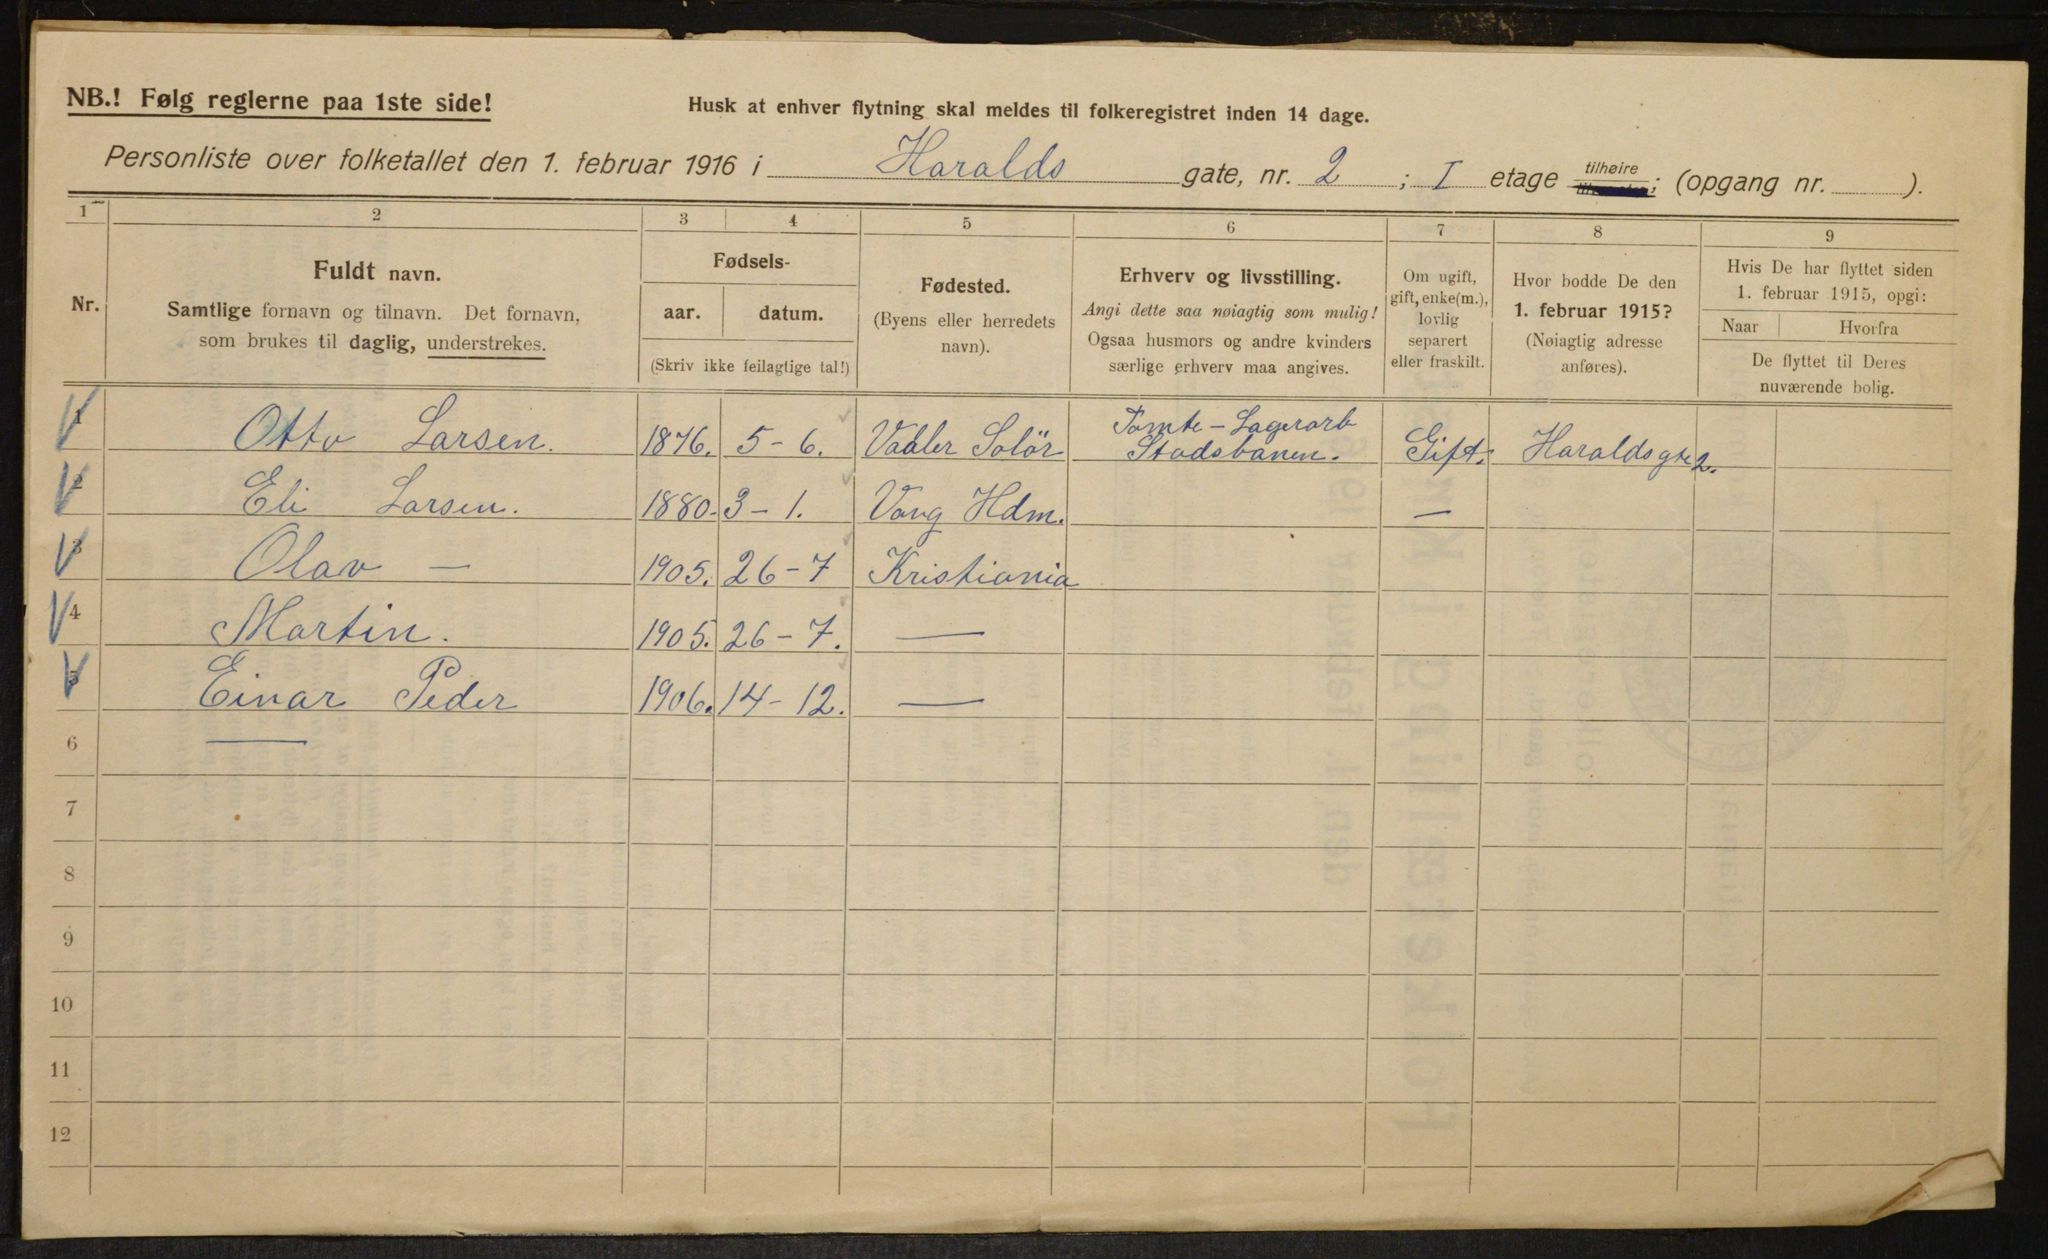 NB.! Følg reglerne paa 1ste side!
Husk at enhver flytning skal meldes til folkeregistret inden 14 dage.
Personliste over folketallet den 1. februar 1916 i Haralds gate, nr. 2 ; I etage tilhøire ; (opgang nr. ).
1 2 3 4 5 6 7 8 9
Nr.
Fuldt navn.
Samtlige fornavn og tilnavn. Det fornavn,
som brukes til daglig, understrekes.
Fødsels-
aar. datum.
(Skriv ikke feilagtige tal!)
Fødested.
(Byens eller herredets
navn).
Erhverv og livsstilling.
Angi dette saa nøiagtig som mulig!
Ogsaa husmors og andre kvinders
særlige erhverv maa angives.
Om ugift,
gift, enke(m.),
lovlig
separert
eller fraskilt.
Hvor bodde De den
1. februar 1915?
(Nøiagtig adresse
anføres).
Hvis De har flyttet siden
1. februar 1915, opgi:
Naar Hvorfra
De flyttet til Deres
nuværende bolig.
1 Otto Larsen. 1876. 5-6. Vaaler Solör Tomte-Lagerarb Stadsbanen. Gift. Haraldsgte 2.
2 Eli Larsen. 1880. 3-1. Vang Hdm. —
3 Olav — 1905. 26-7 Kristiania
4 Martin. 1905. 26-7. —
5 Einar Peder 1906. 14-12. —
—
6
7
8
9
10
11
12